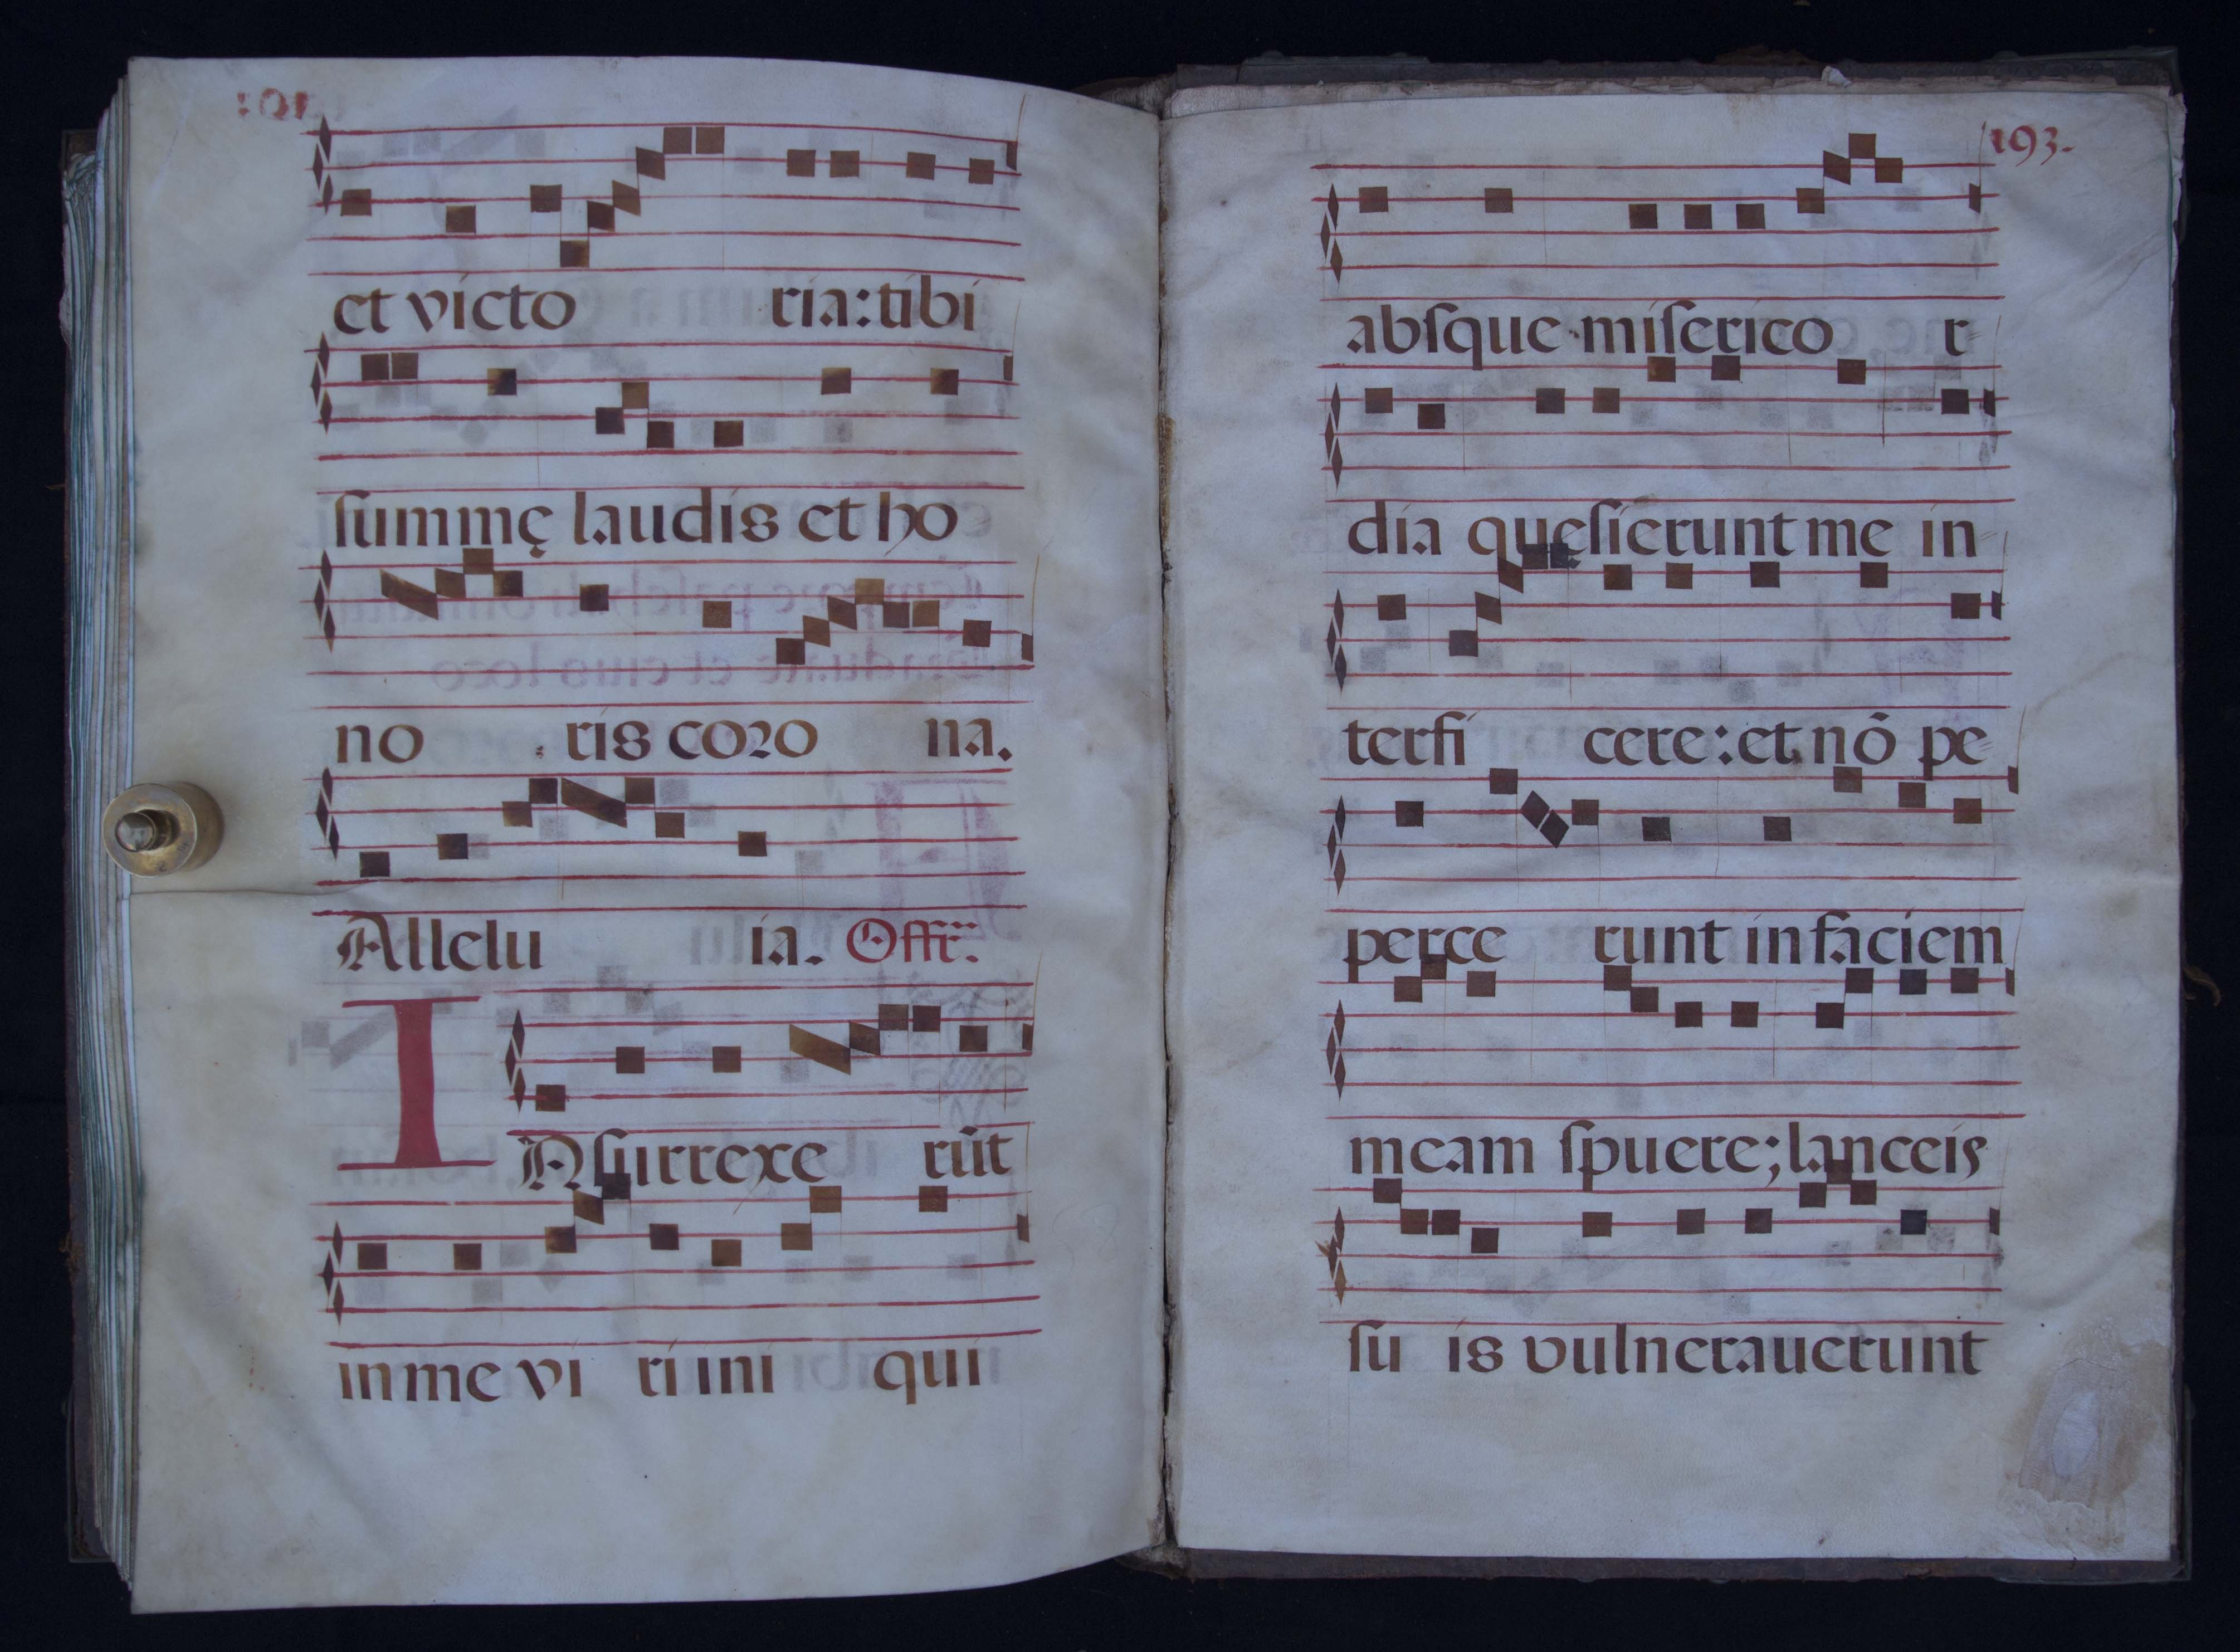 et victo ria: tibi
ſummę laudis et ho
no ris coro na.
Allelu ia. Offr̃.
INſurrexe rũt
in me vi ri ini qui
193.
abſque miſerico r
dia queſierunt me in
terfi cere: et nõ pe
perce runt in faciem
meam ſpuere; lanceis
ſu is vulnerauerunt